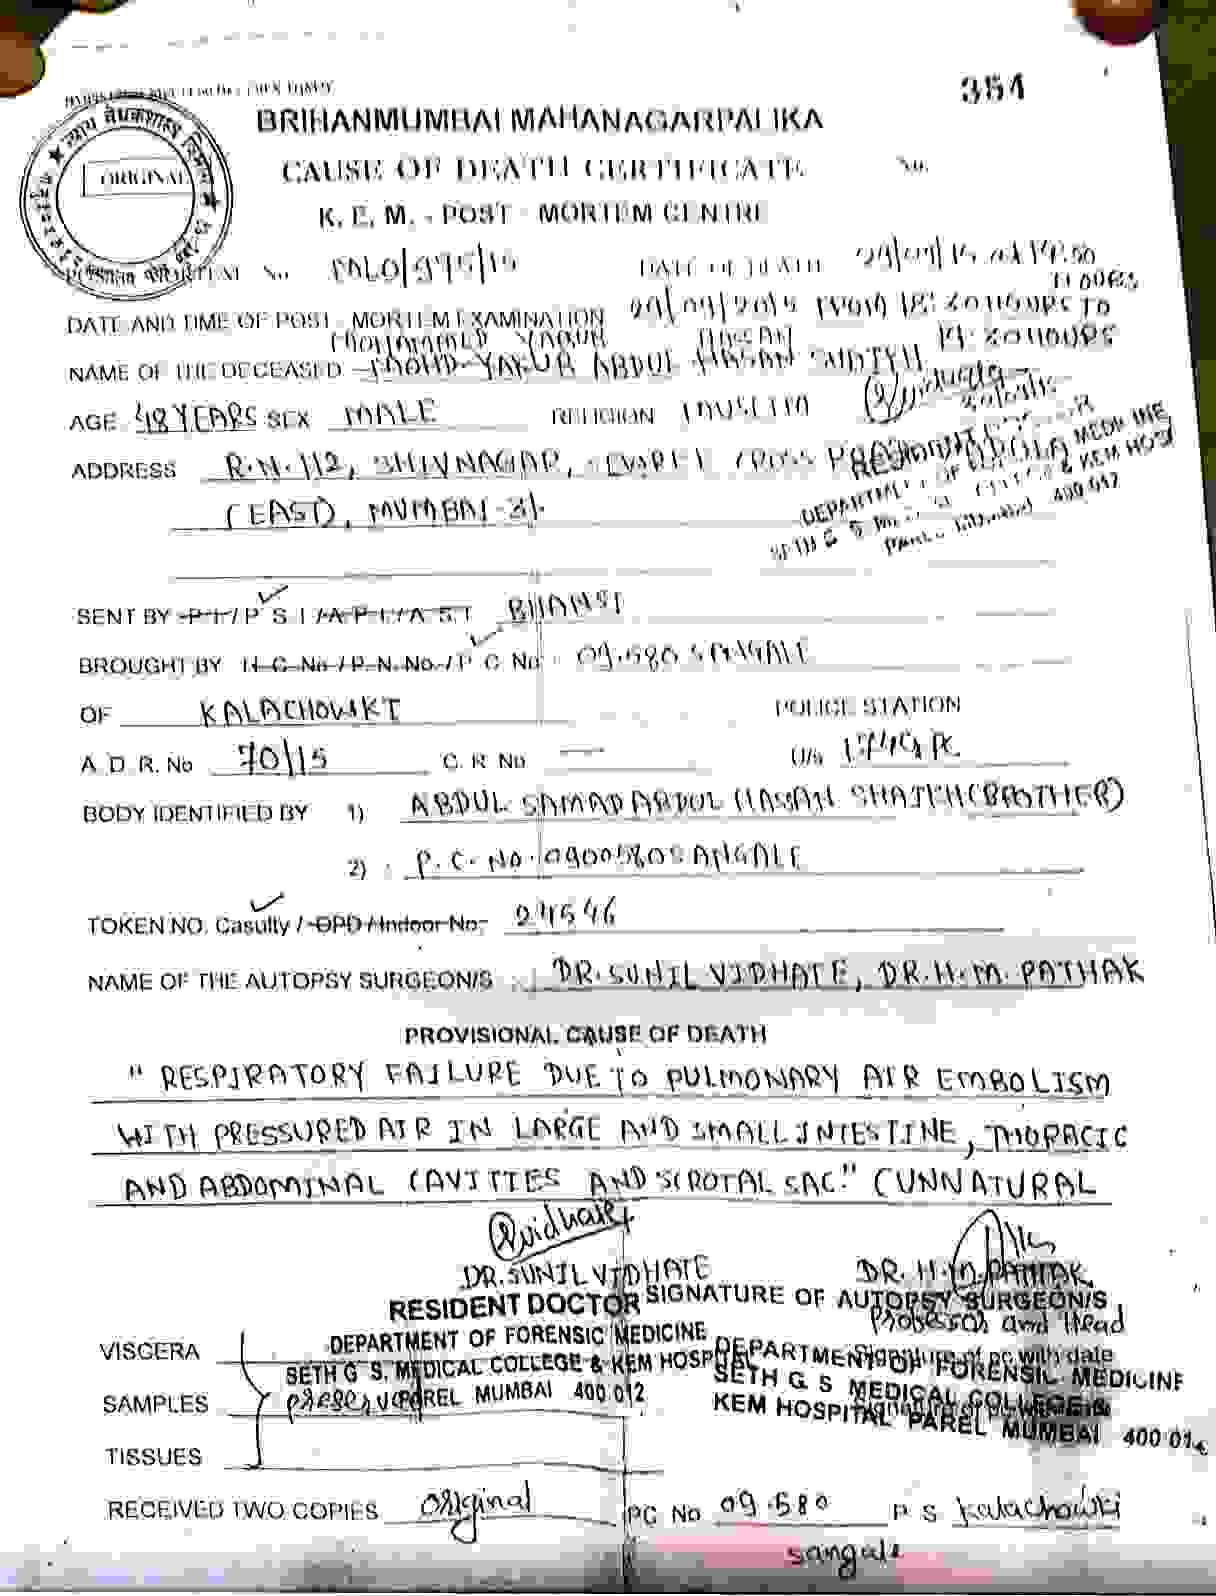 354
BRIHANMUMBAI MAHANAGARPALIKA
ORIGINAL
CAUSE OF DEATH CERTIFICATE No.
K. E. M. - POST - MORTEM CENTRE
No DATE OF DEATH
HOURS
DATE AND TIME OF POST - MORTEM EXAMINATION FROM 18:30 HOURS TO
19:30 HOURS
MOHAMMED YAKUB HASSAN
NAME OF THE DECEASED MOHD YAKUB ABDUL HASAN SHAIKH
AGE 48 YEARS SEX MALE RELIGION MUSLIM
ADDRESS R.N. 112, SHIVNAGAR, SEWREE CROSS
(EAST), MUMBAI-31.
RESIDENT DOCTOR
DEPARTMENT OF MEDICINE
SETH G S & KEM HOSP
400 012
SENT BY P I / P S I / A P I / A S I BHANSI
BROUGHT BY H. C. No. / P. N. No. / P C No 09.580 SANGALE
OF KALACHOWKI POLICE STATION
A. D. R. No 70/15 C. R No — U/s 174
BODY IDENTIFIED BY 1) ABDUL SAMAD ABDUL HASAN SHAIKH (BROTHER)
2) P.C. No. 090580 SANGALE
TOKEN NO. Casulty / OPD / Indoor No. 24546
NAME OF THE AUTOPSY SURGEON/S DR. SUNIL VIDHATE, DR. H. M. PATHAK
PROVISIONAL CAUSE OF DEATH
" RESPIRATORY FAILURE DUE TO PULMONARY AIR EMBOLISM
WITH PRESSURED AIR IN LARGE AND SMALL INTESTINE, THORACIC
AND ABDOMINAL CAVITIES AND SCROTAL SAC." (UNNATURAL
DR. SUNIL VIDHATE DR. H. M. PATHAK
RESIDENT DOCTOR SIGNATURE OF AUTOPSY SURGEON/S
Professor and Head
DEPARTMENT OF FORENSIC MEDICINE
SETH G S. MEDICAL COLLEGE & KEM HOSPITAL
PAREL MUMBAI 400 012
Signature of pc with date
DEPARTMENT OF FORENSIC MEDICINE
SETH G S MEDICAL COLLEGE &
KEM HOSPITAL PAREL MUMBAI 400 012
VISCERA
SAMPLES preserved
TISSUES
RECEIVED TWO COPIES original PC No 09.580 P S Kalachowki
sangale